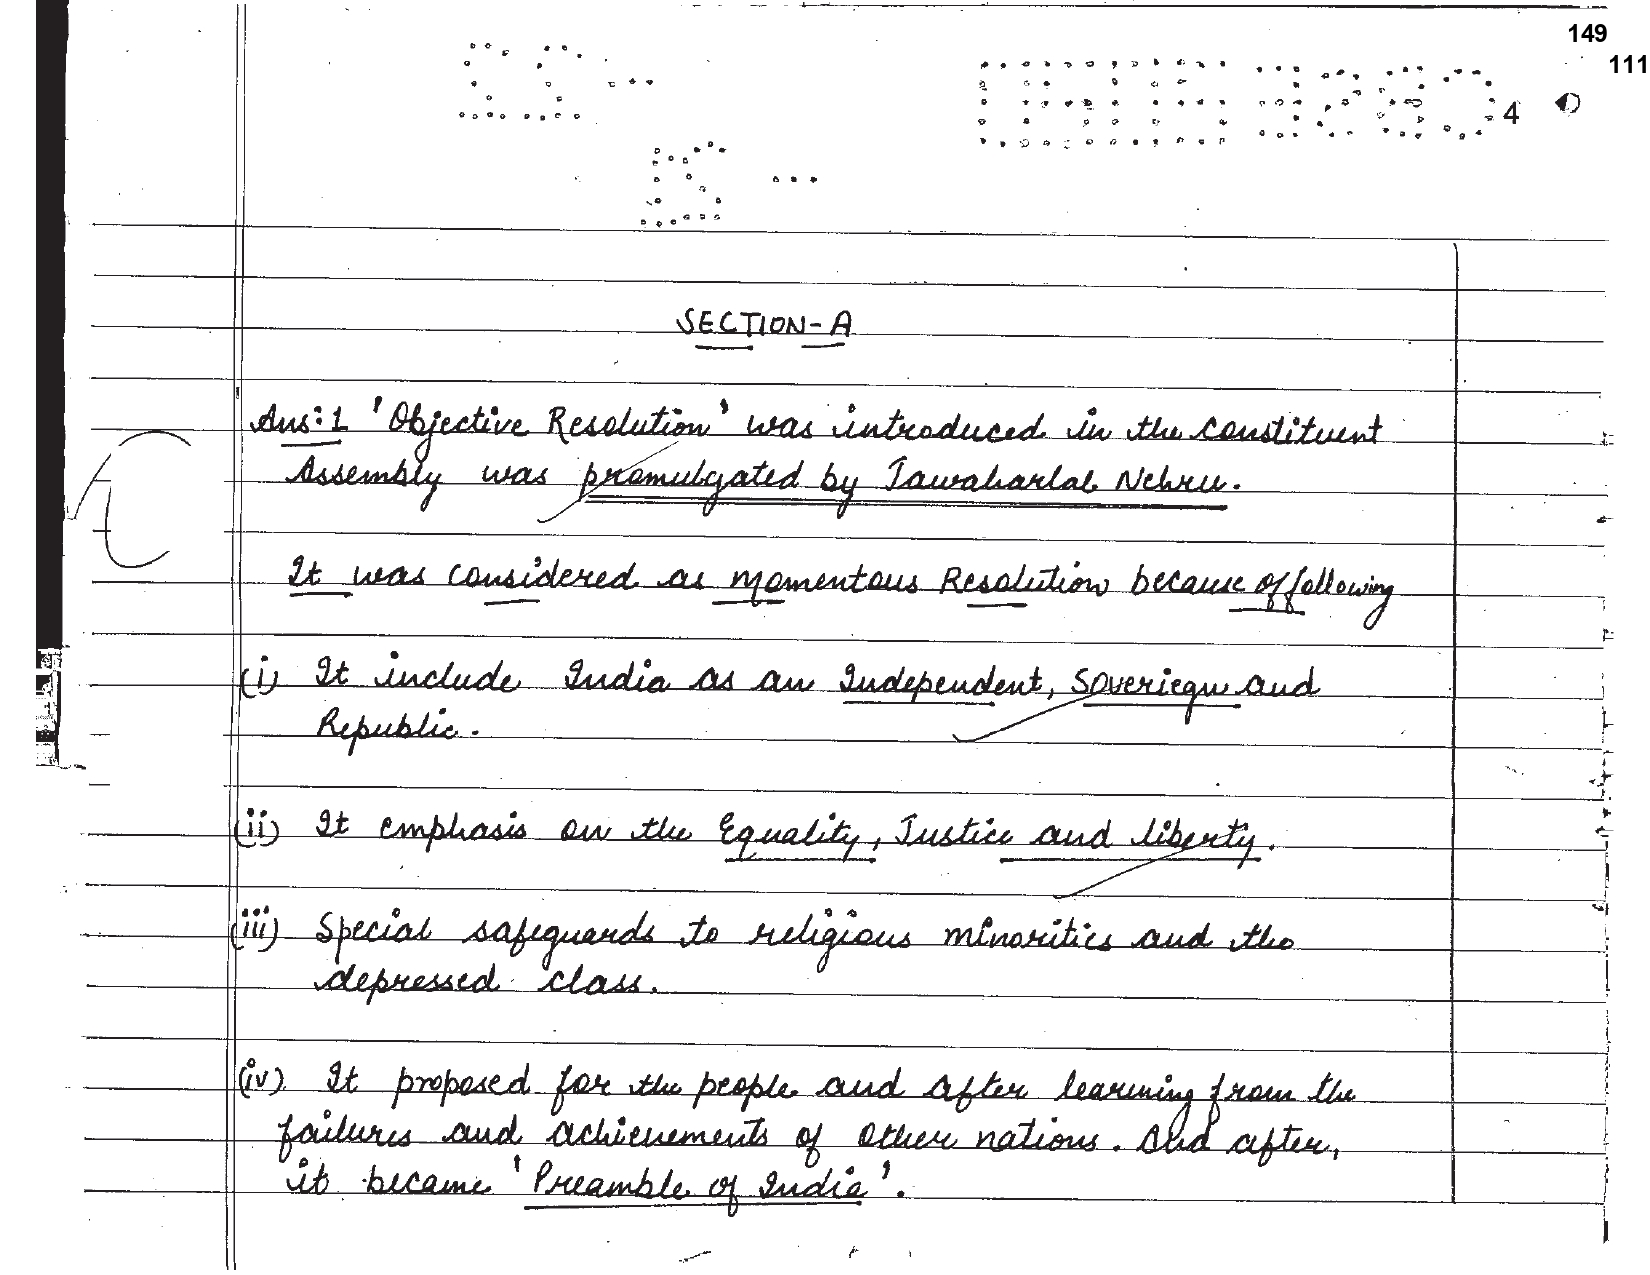 149
111
4
SECTION-A
Ans:1 'Objective Resolution' was introduced in the constituent
Assembly was promulgated by Jawaharlal Nehru.
It was considered as momentous Resolution because of following
(i) It include India as an Independent, Soveriegn and
Republic.
(ii) It emphasis on the Equality, Justice and liberty.
(iii) Special safeguards to religious minorities and the
depressed class.
(iv) It proposed for the people and after learning from the
failures and achievements of other nations. And after,
it became 'Preamble of India'.